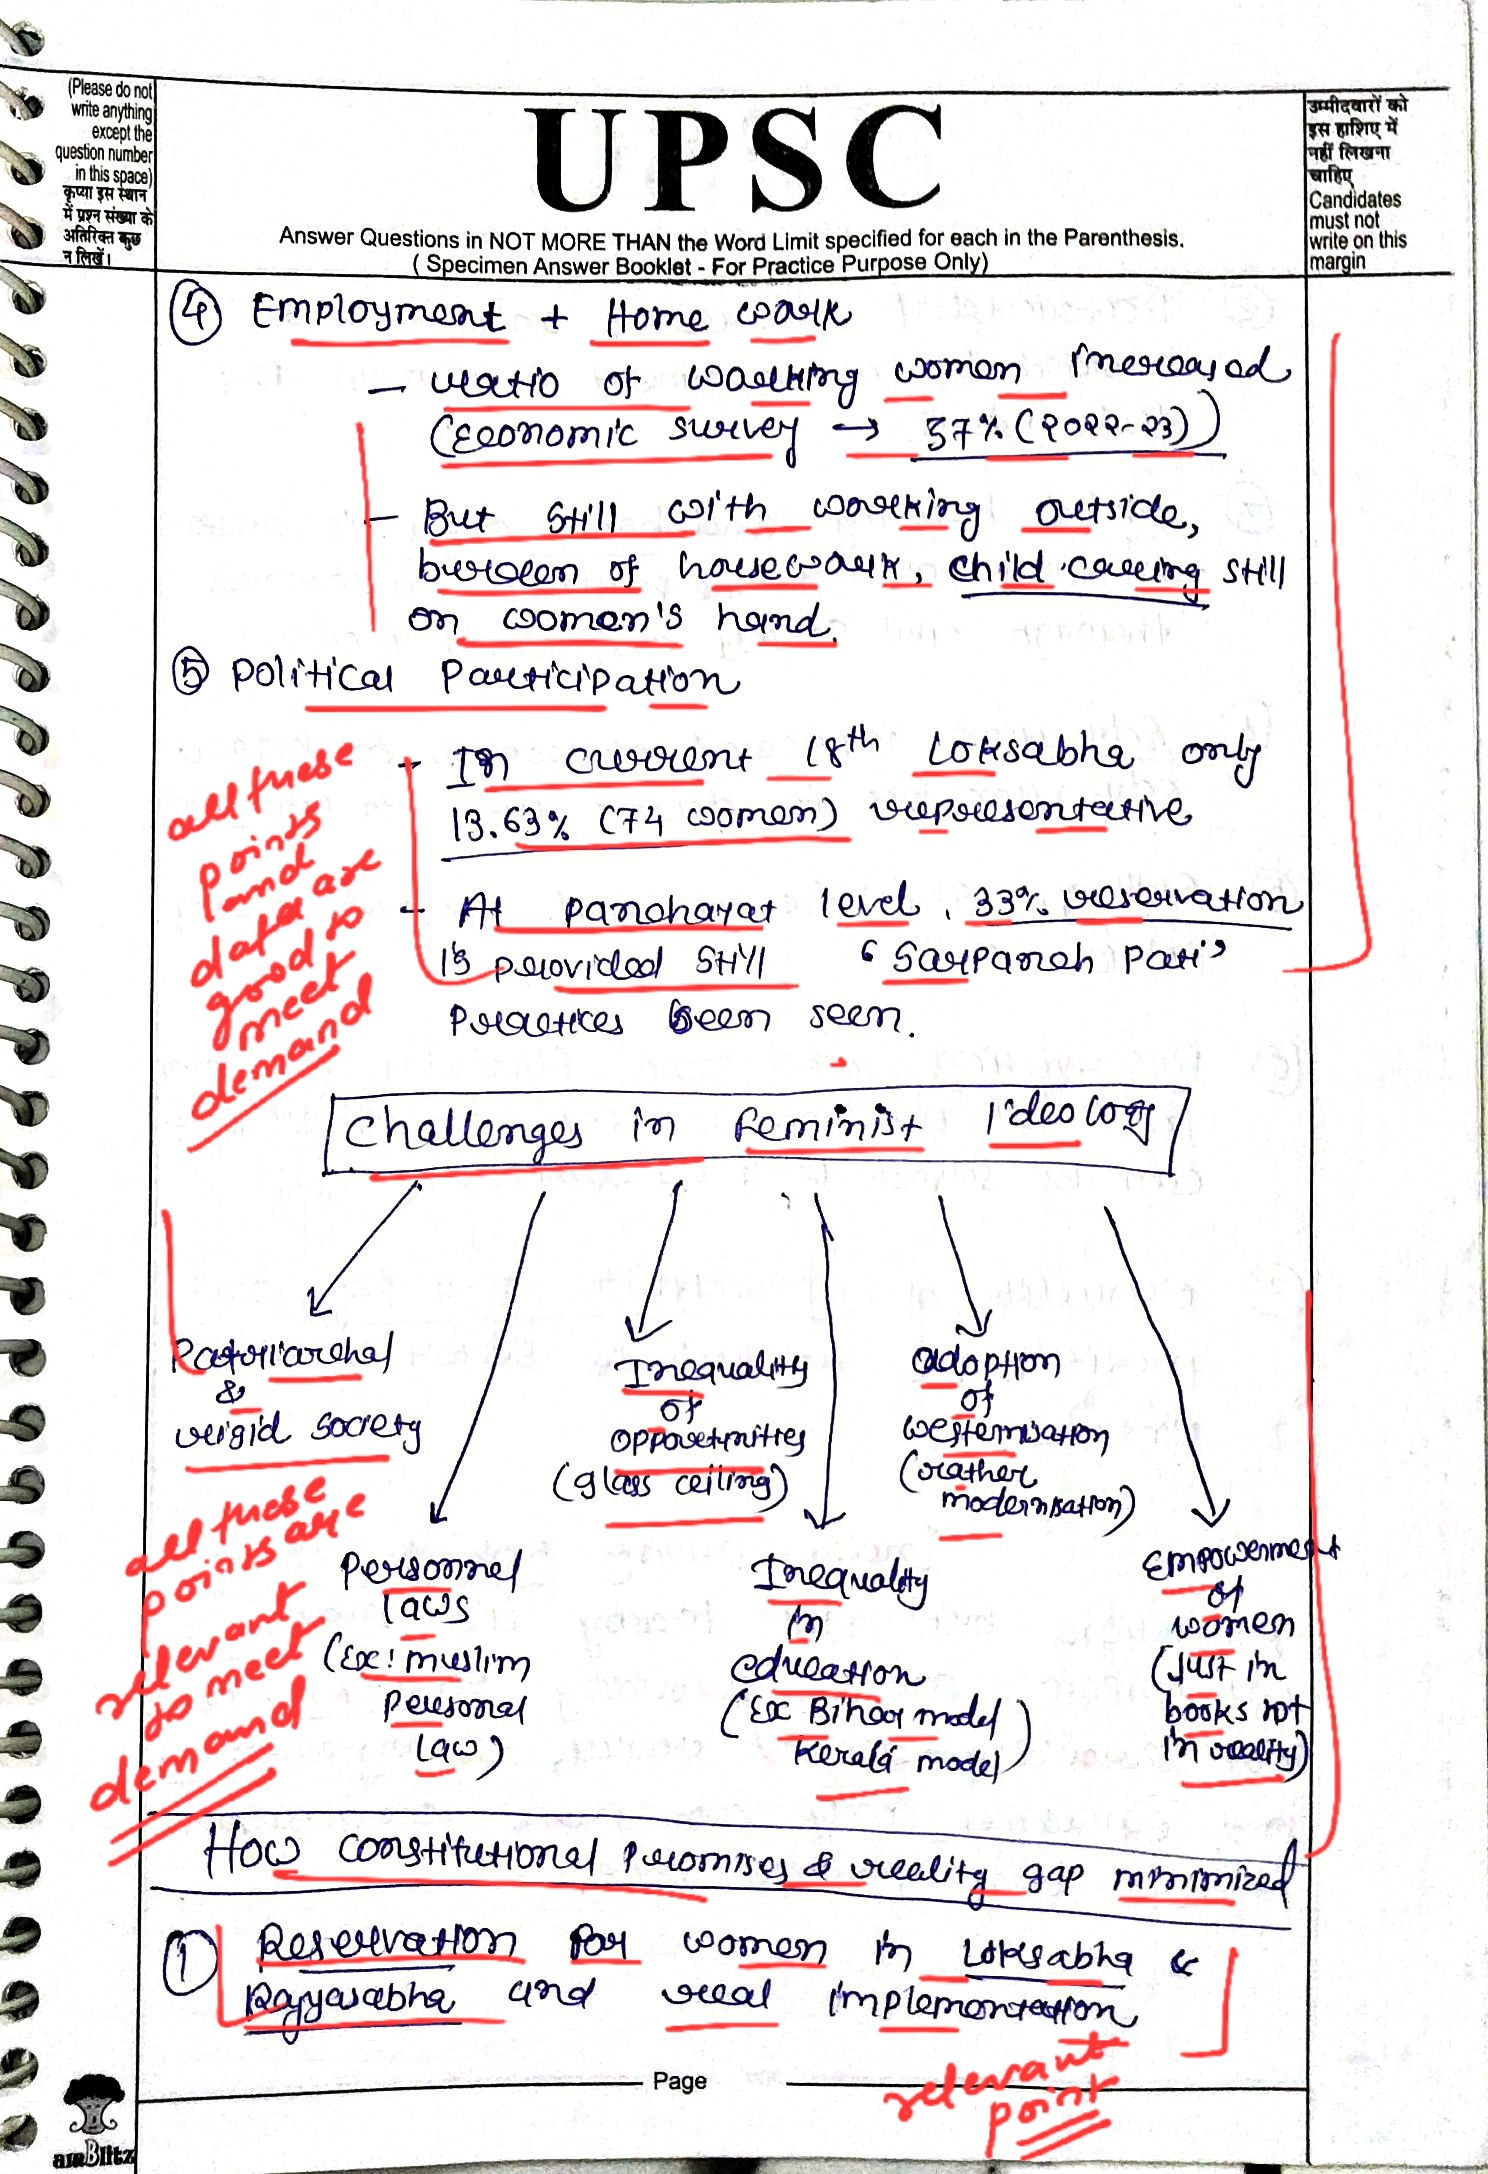 (Please do not
write anything
except the
question number
in this space)
कृप्या इस स्थान
में प्रश्न संख्या के
अतिरिक्त कुछ
न लिखें।
UPSC
Answer Questions in NOT MORE THAN the Word Limit specified for each in the Parenthesis.
( Specimen Answer Booklet - For Practice Purpose Only)
उम्मीदवारों को
इस हाशिए में
नहीं लिखना
चाहिए
Candidates
must not
write on this
margin
④ Employment + Home work
- ratio of working women increased
(Economic survey → 37% (2022-23))
- But still with working outside,
burden of housework, child caring still
on women's hand.
⑤ Political Participation
- In current 18th Loksabha only
13.63% (74 women) representative
- At Panchayat level, 33% reservation
is provided still 'Sarpanch Pati'
Practices been seen.
all these
points
and
data are
good to
meet
demand
Challenges in Feminist Ideology
Patriarchal
&
rigid society
Inequality
of
opportunities
(glass ceiling)
adoption
of
westernisation
(rather
modernisation)
Personnel
laws
(Ex: muslim
Personal
law)
Inequality
in
education
(Ex Bihar model
Kerala model)
Empowerment
of
women
(Just in
books not
in reality)
all these
points are
relevant
to meet
demand
How constitutional promises & reality gap minimized
① Reservation for women in Loksabha &
Rajyasabha and real implementation
relevant
point
Page
aamBlitz